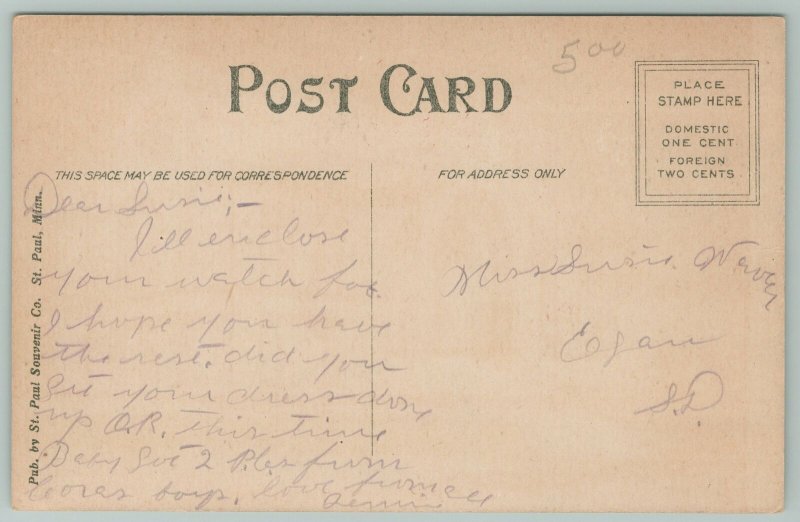 500
POST CARD
PLACE
STAMP HERE
DOMESTIC
ONE CENT
FOREIGN
TWO CENTS
THIS SPACE MAY BE USED FOR CORRESPONDENCE
FOR ADDRESS ONLY
Pub. by St. Paul Souvenir Co. St. Paul, Minn.
Dear Susie;—
I'll enclose
your watch fob.
I hope you have
the rest, did you
get your dress done
up O.K. this time
Baby got 2 from
Coras boys. love from all
Miss Susie
Egan
S.D.